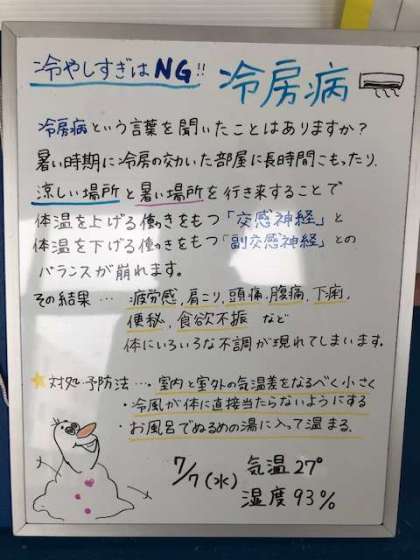 冷やしすぎはNG!!
冷房病
冷房病という言葉を聞いたことはありますか?
暑い時期に冷房の効いた部屋に長時間こもったり、
涼しい場所と暑い場所を行き来することで
体温を上げる働きをもつ「交感神経」と
体温を下げる働きをもつ「副交感神経」との
バランスが崩れます。
その結果… 疲労感、肩こり、頭痛、腹痛、下痢、
便秘、食欲不振 など
体にいろいろな不調が現れてしまいます。
★対処・予防法…・室内と室外の気温差をなるべく小さく
・冷風が体に直接当たらないようにする
・お風呂でぬるめの湯に入って温まる。
7/7(水) 気温27°
湿度93%